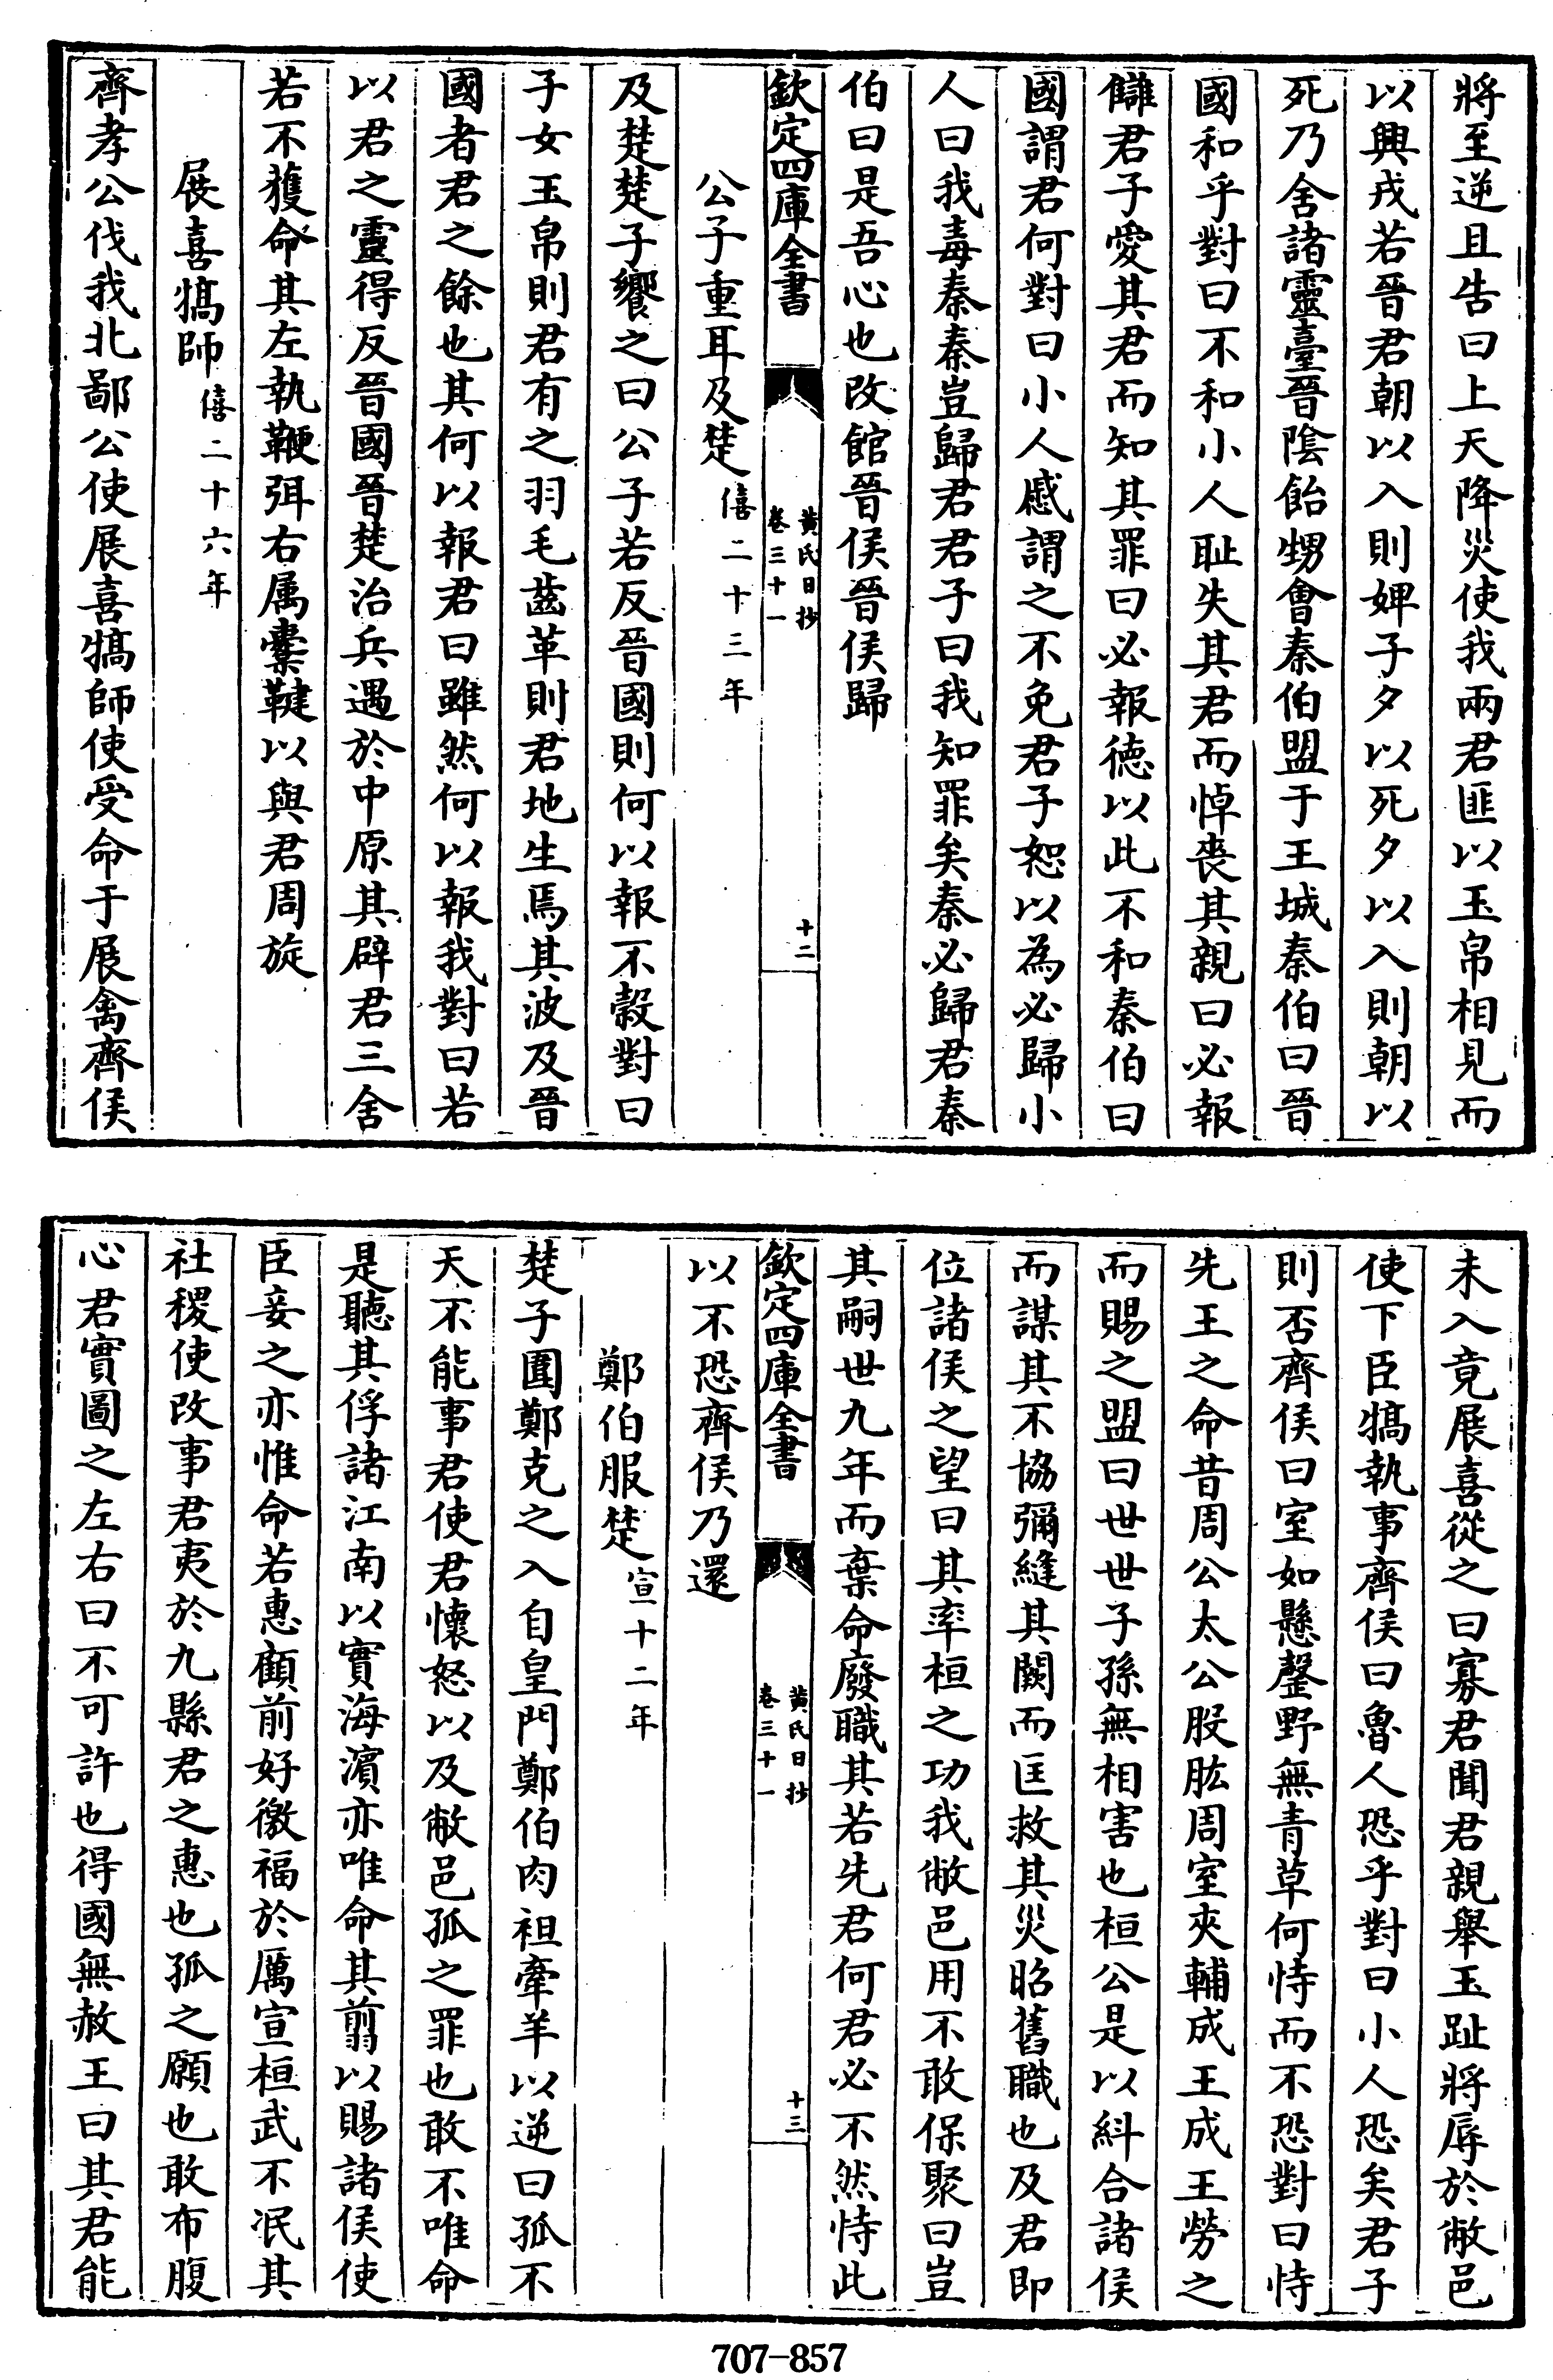 將至逆且告曰上天降災使我兩君匪以玉帛相見而
以興戎若晉君朝以入則婢子夕以死夕以入則朝以
死乃舍諸靈臺晉隂飴甥會秦伯盟于王城秦伯曰晉
國和乎對曰不和小人耻失其君而悼喪其親曰必報
讎君子愛其君而知其罪曰必報徳以此不和秦伯曰
國謂君何對曰小人慼謂之不免君子恕以為必歸小
人曰我毒秦秦豈歸君君子曰我知罪矣秦必歸君秦
伯曰是吾心也改館晉侯晉侯歸
欽定四庫全書
黃氏日抄
卷三十一
十二
公子重耳及楚僖二十三年
及楚楚子饗之曰公子若反晉國則何以報不穀對曰
子女玉帛則君有之羽毛齒革則君地生焉其波及晉
國者君之餘也其何以報君曰雖然何以報我對曰若
以君之靈得反晉國晉楚治兵遇於中原其辟君三舍
若不獲命其左執鞭弭右属櫜鞬以與君周旋
展喜犒師僖二十六年
齊孝公伐我北鄙公使展喜犒師使受命于展禽齊侯
未入竟展喜從之曰寡君聞君親舉玉趾將辱於敝邑
使下臣犒執事齊侯曰魯人恐乎對曰小人恐矣君子
則否齊侯曰室如懸罄野無青草何恃而不恐對曰恃
先王之命昔周公太公股肱周室夾輔成王成王勞之
而賜之盟曰世世子孫無相害也桓公是以糾合諸侯
而謀其不協彌縫其闕而匡救其災昭舊職也及君即
位諸侯之望曰其率桓之功我敝邑用不敢保聚曰豈
其嗣世九年而棄命廢職其若先君何君必不然恃此
欽定四庫全書
黃氏日抄
卷三十一
十三
以不恐齊侯乃還
鄭伯服楚宣十二年
楚子圍鄭克之入自皇門鄭伯肉袒牽羊以逆曰孤不
天不能事君使君懷怒以及敝邑孤之罪也敢不唯命
是聽其俘諸江南以實海濵亦唯命其翦以賜諸侯使
臣妾之亦惟命若惠顧前好徼福於厲宣桓武不泯其
社稷使改事君夷於九縣君之惠也孤之願也敢布腹
心君實圖之左右曰不可許也得國無赦王曰其君能
707-857